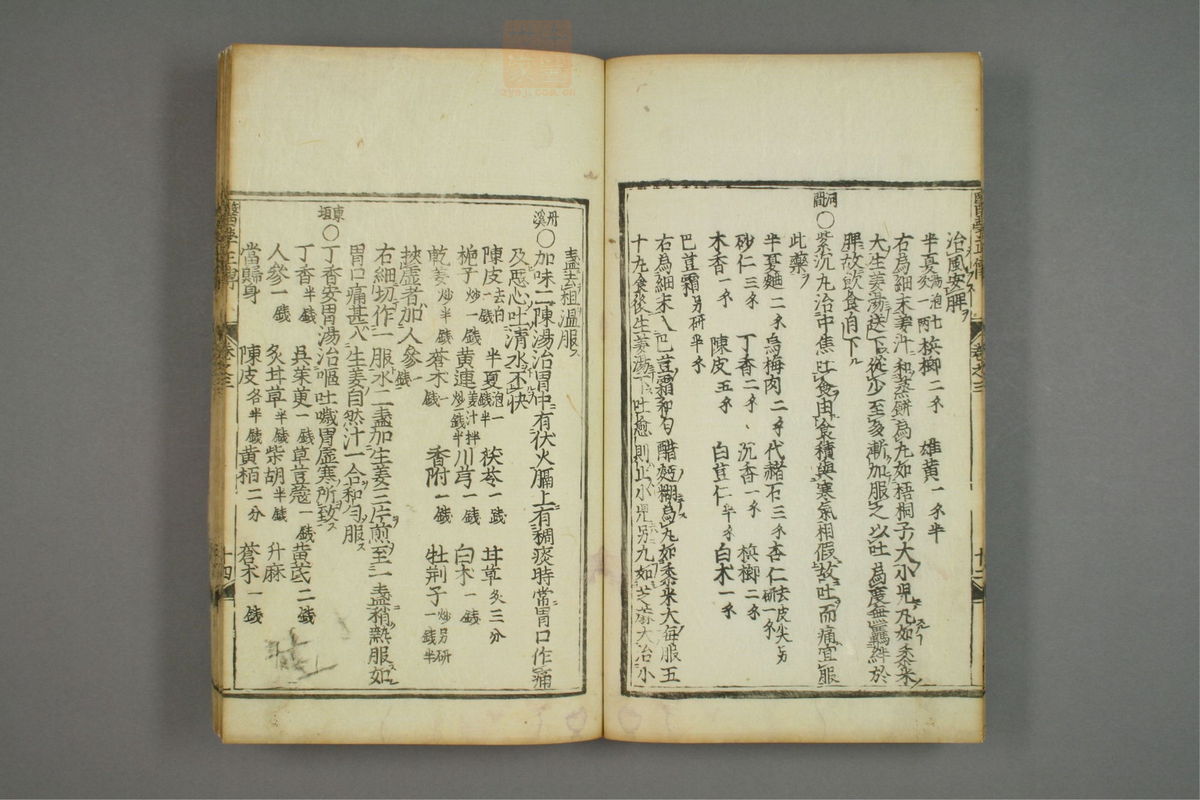 治風安脾
半夏湯泡七次一兩 檳榔二分 雄黄一分半
右為細末姜汁和蒸餅為丸如梧桐子大小児丸如黍米
大生姜湯送下從少至多漸加服之以吐為度無羈絆於
脾故飲食自下
河間
○紫沉丸治中焦吐食由食積與寒氣相假故吐而痛宜服
此藥
半夏麯二分烏梅肉二分代赭石三分杏仁去皮尖另研一分
砂仁三分 丁香二分 沉香一分 檳榔二分
木香一分 陳皮五分 白荳仁半分 白木一分
巴荳霜另研半分
右為細末入巴荳霜和勻醋麵糊為丸如黍米大每服五
十丸食後生姜湯下吐愈則止小児另丸如芝麻大治小
盞去粗温服
丹溪
○加味二陳湯治胃中有伏火膈上有稠痰時常胃口作痛
及惡心吐清水不快
陳皮去白一錢 半夏泡一錢半 茯苓一錢 甘草炙三分
梔子炒一錢 黄連姜汁拌炒一錢半川芎一錢 白木一錢
乾姜炒半錢 蒼木一錢 香附一錢 牡荆子炒另研一錢半
挾虛者加人參一錢
右細切作一服水二盞加生姜三片煎至一盞稍熱服如
胃口痛甚入生姜自然汁一合和勻服
東垣
○丁香安胃湯治嘔吐噦胃虛寒所致
丁香半錢 吳茱萸一錢草荳蔻一錢黄芪二錢
人參一錢 炙甘草半錢柴胡半錢 升麻
當歸身 陳皮各半錢黄栢二分 蒼木一錢